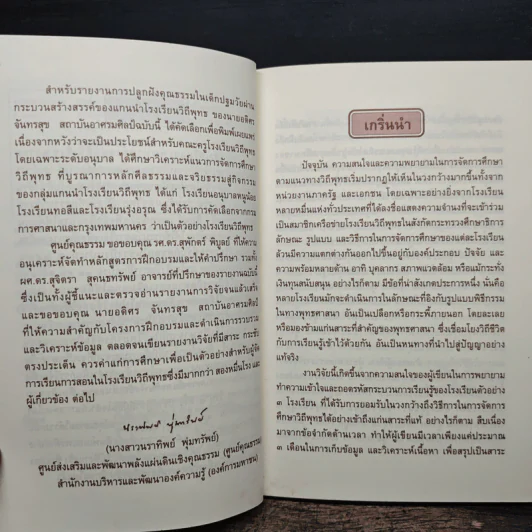 สำหรับรายงานการปลูกฝังคุณธรรมในเด็กปฐมวัยผ่าน
กระบวนสร้างสรรค์ของแกนนำโรงเรียนวิถีพุทธ ของนายอดิศร
จันทรสุข สถาบันอาศรมศิลป์ฉบับนี้ ได้คัดเลือกเพื่อพิมพ์เผยแพร่
เนื่องจากหวังว่าจะเป็นประโยชน์สำหรับคณะครูโรงเรียนวิถีพุทธ
โดยเฉพาะระดับอนุบาล ได้ศึกษาวิเคราะห์แนวการจัดการศึกษา
วิถีพุทธ ที่บูรณาการหลักศีลธรรมและจริยธรรมสู่กิจกรรม
ของกลุ่มแกนนำโรงเรียนวิถีพุทธ ได้แก่ โรงเรียนอนุบาลหนูน้อย
โรงเรียนทอสีและโรงเรียนรุ่งอรุณ ซึ่งได้รับการคัดเลือกจากกรม
การศาสนาและกรุงเทพมหานคร ว่าเป็นตัวอย่างโรงเรียนวิถีพุทธ
ศูนย์คุณธรรม ขอขอบคุณ รศ.ดร.สุพักตร์ พิบูลย์ ที่ให้ความ
อนุเคราะห์จัดทำหลักสูตรการฝึกอบรมและให้คำปรึกษา รวมทั้ง
ผศ.ดร.สุจิตรา สุคนธทรัพย์ อาจารย์ที่ปรึกษาของรายงานฉบับนี้
ซึ่งเป็นทั้งผู้ชี้แนะและตรวจอ่านรายงานการวิจัยจนแล้วเสร็จ
และขอขอบคุณ นายอดิศร จันทรสุข สถาบันอาศรมศิลป์
ที่ให้ความสำคัญกับโครงการฝึกอบรมและดำเนินการรวบรวม
และวิเคราะห์ข้อมูล ตลอดจนเขียนรายงานวิจัยที่มีสาระ กระชับ
ตรงประเด็น ควรค่าแก่การศึกษาเพื่อเป็นตัวอย่างสำหรับผู้จัด
การเรียนการสอนในโรงเรียนวิถีพุทธซึ่งมีมากกว่า สองหมื่นโรง และ
ผู้เกี่ยวข้อง ต่อไป
(นางสาวนราทิพย์ พุ่มทรัพย์)
ศูนย์ส่งเสริมและพัฒนาพลังแผ่นดินเชิงคุณธรรม (ศูนย์คุณธรรม)
สำนักงานบริหารและพัฒนาองค์ความรู้ (องค์การมหาชน)
เกริ่นนำ
ปัจจุบัน ความสนใจและความพยายามในการจัดการศึกษา
ตามแนวทางวิถีพุทธเริ่มปรากฏให้เห็นในวงกว้างมากขึ้นทั้งจาก
หน่วยงานภาครัฐ และเอกชน โดยเฉพาะอย่างยิ่งจากโรงเรียน
หลายหมื่นแห่งทั่วประเทศที่ได้ลงชื่อแสดงความจำนงที่จะเข้าร่วม
เป็นสมาชิกเครือข่ายโรงเรียนวิถีพุทธในสังกัดกระทรวงศึกษาธิการ
ลักษณะ รูปแบบ และวิธีการในการจัดการศึกษาของแต่ละโรงเรียน
ล้วนมีความแตกต่างกันออกไปขึ้นอยู่กับองค์ประกอบ ปัจจัย และ
ความพร้อมหลายด้าน อาทิ บุคลากร สภาพแวดล้อม หรือแม้กระทั่ง
เงินทุนสนับสนุน อย่างไรก็ตาม มีข้อที่น่าสังเกตประการหนึ่ง นั่นคือ
หลายโรงเรียนมักจะดำเนินการในลักษณะที่อิงกับรูปแบบพิธีกรรม
ในทางพุทธศาสนา อันเป็นเปลือกหรือกระพี้ภายนอก โดยละเลย
หรือมองข้ามแก่นสาระที่สำคัญของพุทธศาสนา ซึ่งเชื่อมโยงวิถีชีวิต
กับการเรียนรู้เข้าไว้ด้วยกัน อันเป็นหนทางที่นำไปสู่ปัญญาอย่าง
แท้จริง
งานวิจัยนี้เกิดขึ้นจากความสนใจของผู้เขียนในการพยายาม
ทำความเข้าใจและถอดรหัสกระบวนการเรียนรู้ของโรงเรียนตัวอย่าง
๓ โรงเรียน ที่ได้รับการยอมรับในวงกว้างถึงวิธีการในการจัดการ
ศึกษาวิถีพุทธได้อย่างเข้าถึงแก่นสาระที่แท้ อย่างไรก็ตาม สืบเนื่อง
มาจากข้อจำกัดด้านเวลา ทำให้ผู้เขียนมีเวลาเพียงแค่ประมาณ
๓ เดือนในการเก็บข้อมูล และวิเคราะห์เนื้อหา เพื่อสรุปเป็นสาระ